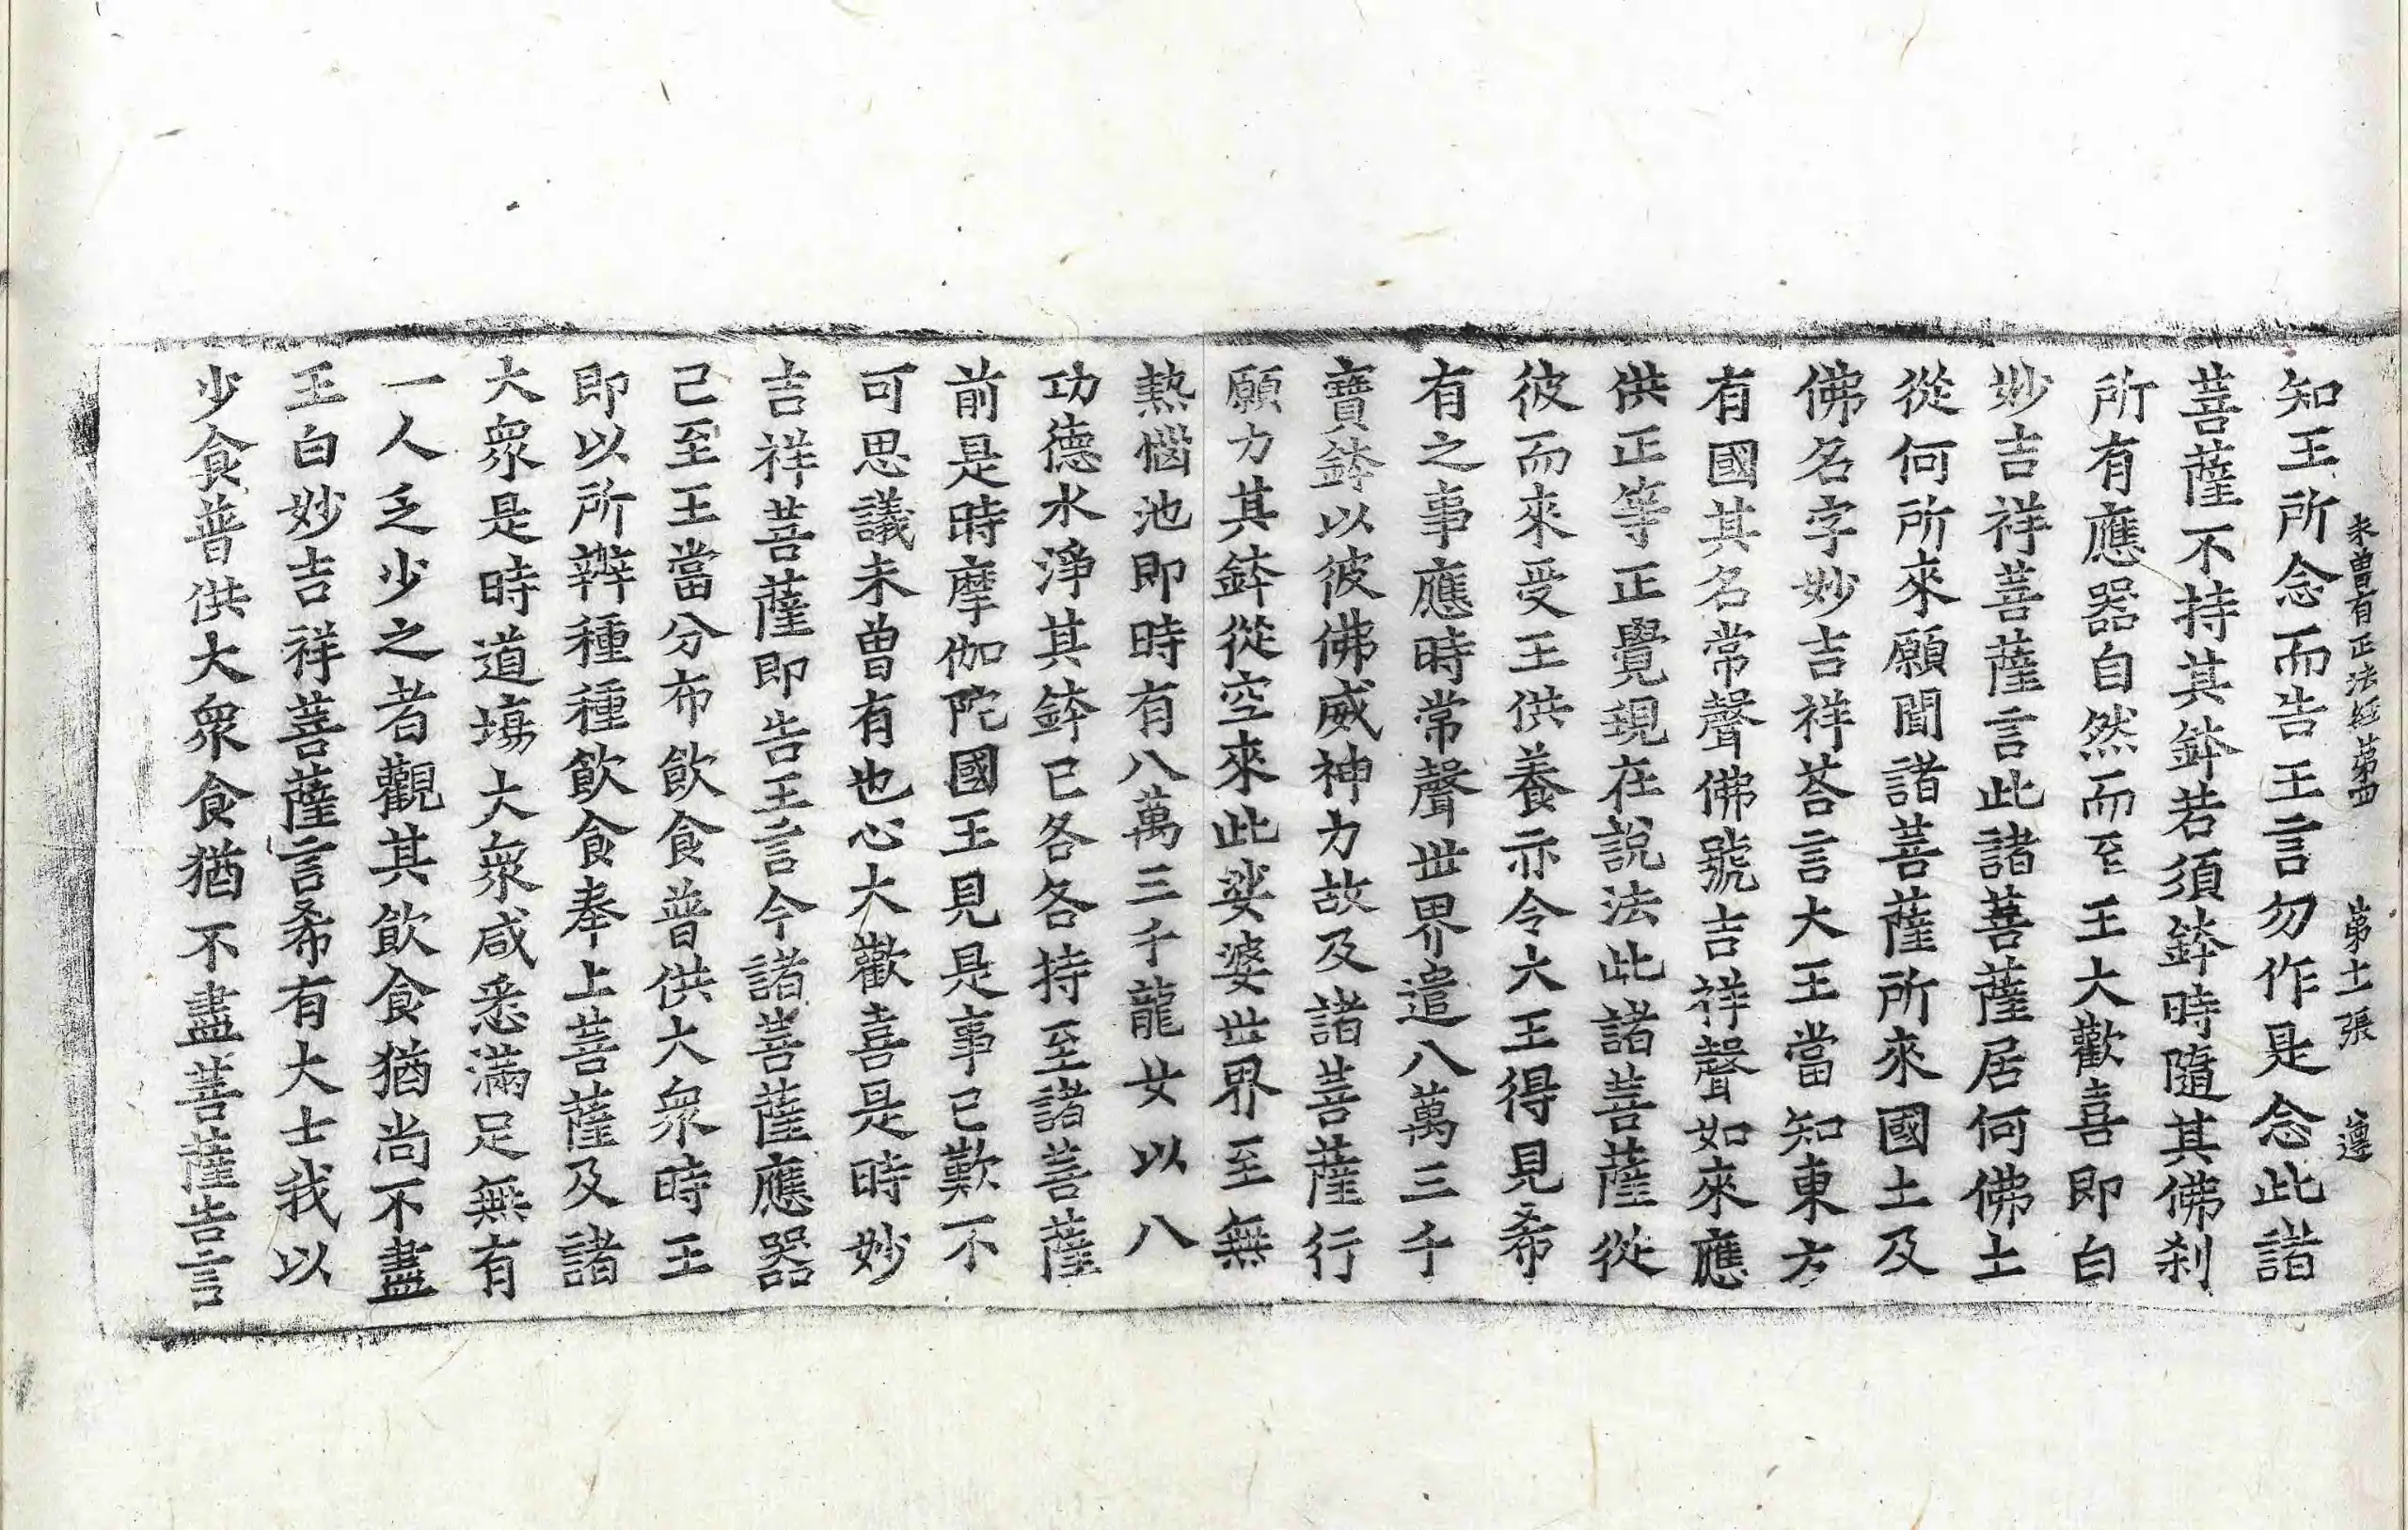 未曾有正法經第四 第十一張 邅
知王所念而告王言勿作是念此諸
菩薩不持其鉢若須鉢時隨其佛刹
所有應器自然而至王大歡喜即白
妙吉祥菩薩言此諸菩薩居何佛土
從何所來願聞諸菩薩所來國土及
佛名字妙吉祥荅言大王當知東方
有國其名常聲佛號吉祥聲如來應
供正等正覺現在說法此諸菩薩從
彼而來受王供養亦令大王得見希
有之事應時常聲世界遣八萬三千
寶鉢以彼佛威神力故及諸菩薩行
願力其鉢從空來此娑婆世界至無
熱惱池即時有八萬三千龍女以八
功德水淨其鉢已各各持至諸菩薩
前是時摩伽陀國王見是事已歎不
可思議未曾有也心大歡喜是時妙
吉祥菩薩即告王言今諸菩薩應器
已至王當分布飲食普供大衆時王
即以所辦種種飲食奉上菩薩及諸
大衆是時道場大衆咸悉滿足無有
一人乏少之者觀其飲食猶尚不盡
王白妙吉祥菩薩言希有大士我以
少食普供大衆食猶不盡菩薩告言